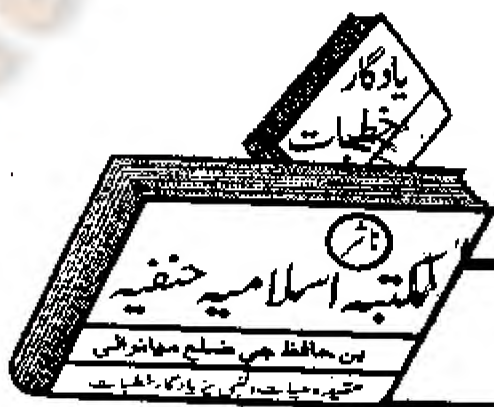 یادگار
خطبات
ناشر
مکتبہ اسلامیہ حنفیہ
بن حافظ جی ضلع میانوالی
یادگار خطبات